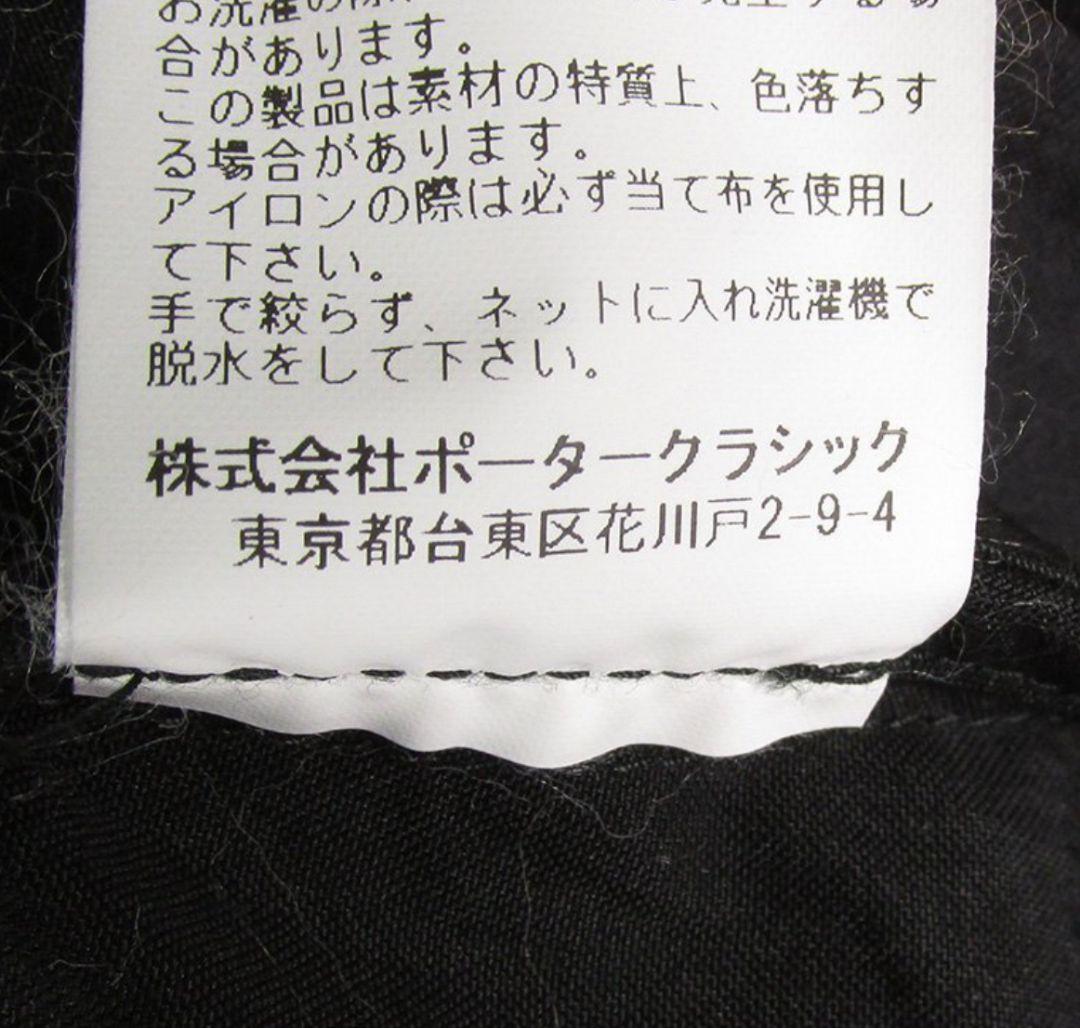 お洗濯の際
する場
合があります。
この製品は素材の特質上、色落ちす
る場合があります。
アイロンの際は必ず当て布を使用し
て下さい。
手で絞らず、ネットに入れ洗濯機で
脱水をして下さい。
株式会社ポータークラシック
東京都台東区花川戸2-9-4